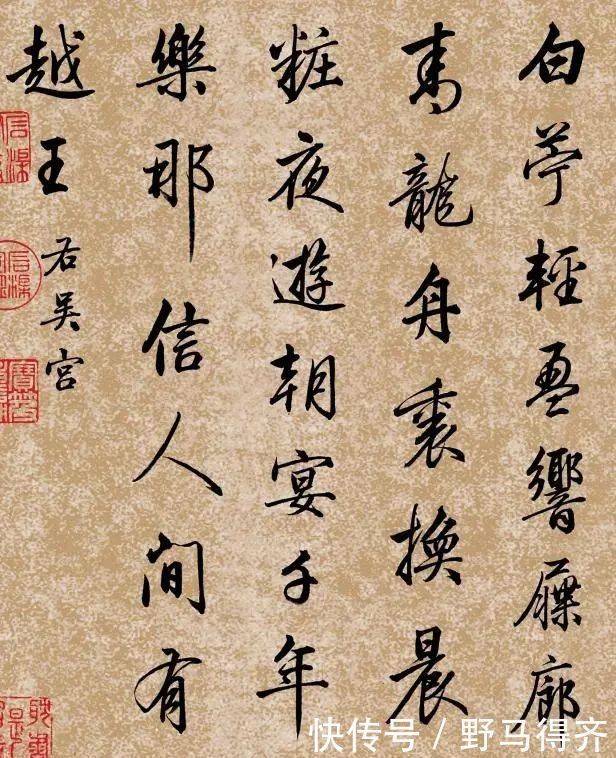 白苧輕盈響屧廊
青龍舟裏換晨
粧夜遊朝宴千年
樂那信人間有
越王
右吳宮
快传号 / 野马得齐